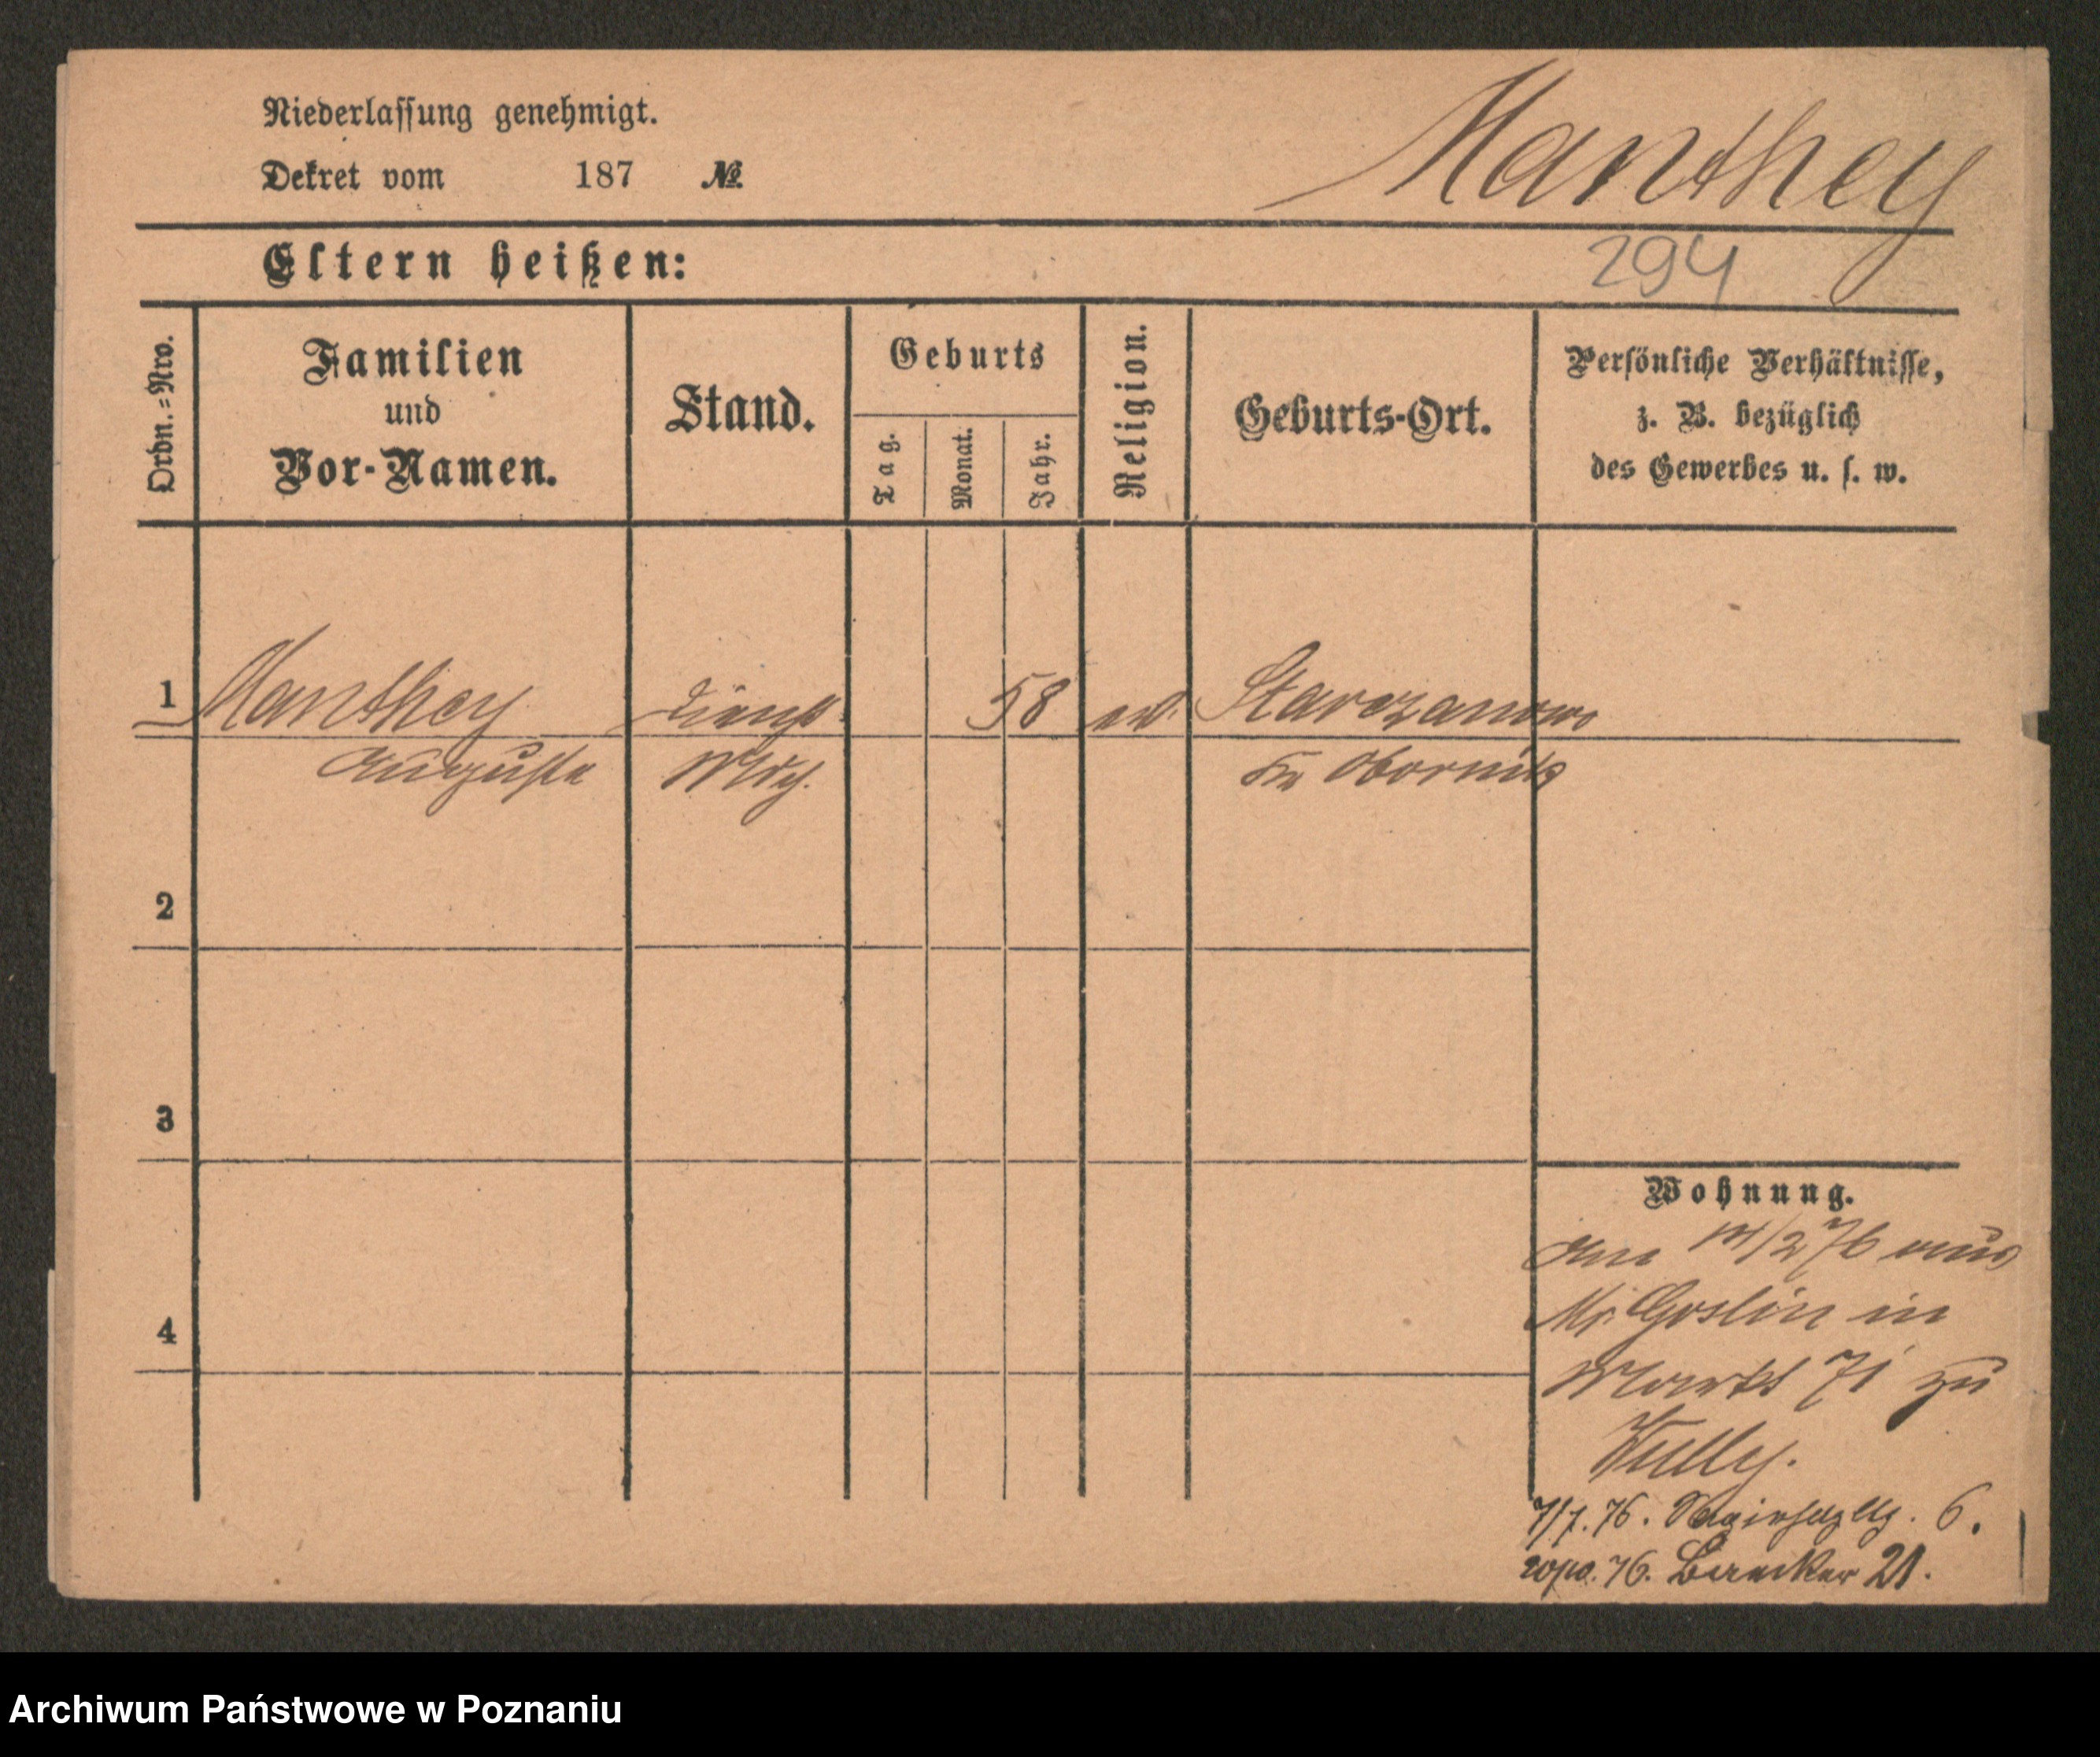 Niederlassung genehmigt.
Dekret vom 187 №
Manthey
Eltern heißen:
294
Ordn.=Nro.
Familien
und
Vor-Namen.
Stand.
Geburts
Tag.
Monat.
Jahr.
Religion.
Geburts-Ort.
Persönliche Verhältnisse,
z. B. bezüglich
des Gewerbes u. s. w.
1 Manthey Dienst 58 ev. Starczanowo
Auguste Mdch. Kr Obornik
2
3
4
Wohnung.
am 2 76 aus
Goslin in
Markt 71 zu
7/7. 76. 6.
76. Baecker 21.
Archiwum Państwowe w Poznaniu